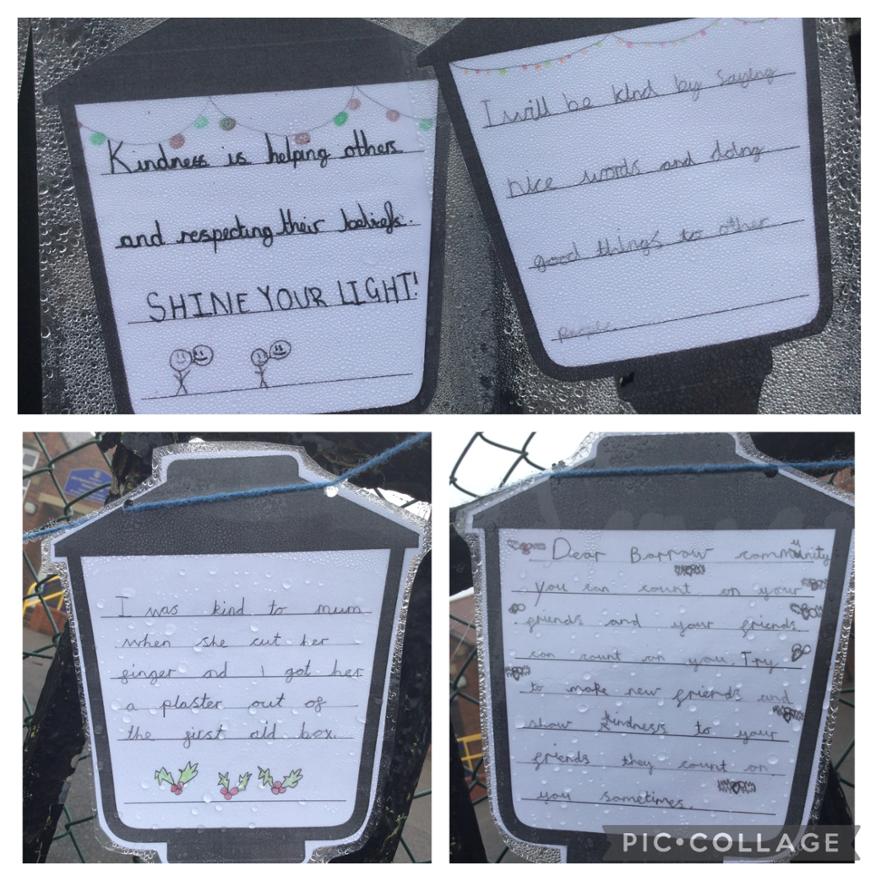 Kindness is helping others
and respecting their beliefs.
SHINE YOUR LIGHT!
I will be kind by saying
nice words and doing
good things to other
people.
I was kind to mum
when she cut her
finger nd i got her
a plaster out of
the first aid box.
Dear Barrow community
you can count on your
friends and your friends
can count on you. Try
to make new friends and
show kindness to your
friends they count on
you sometimes.
PIC•COLLAGE